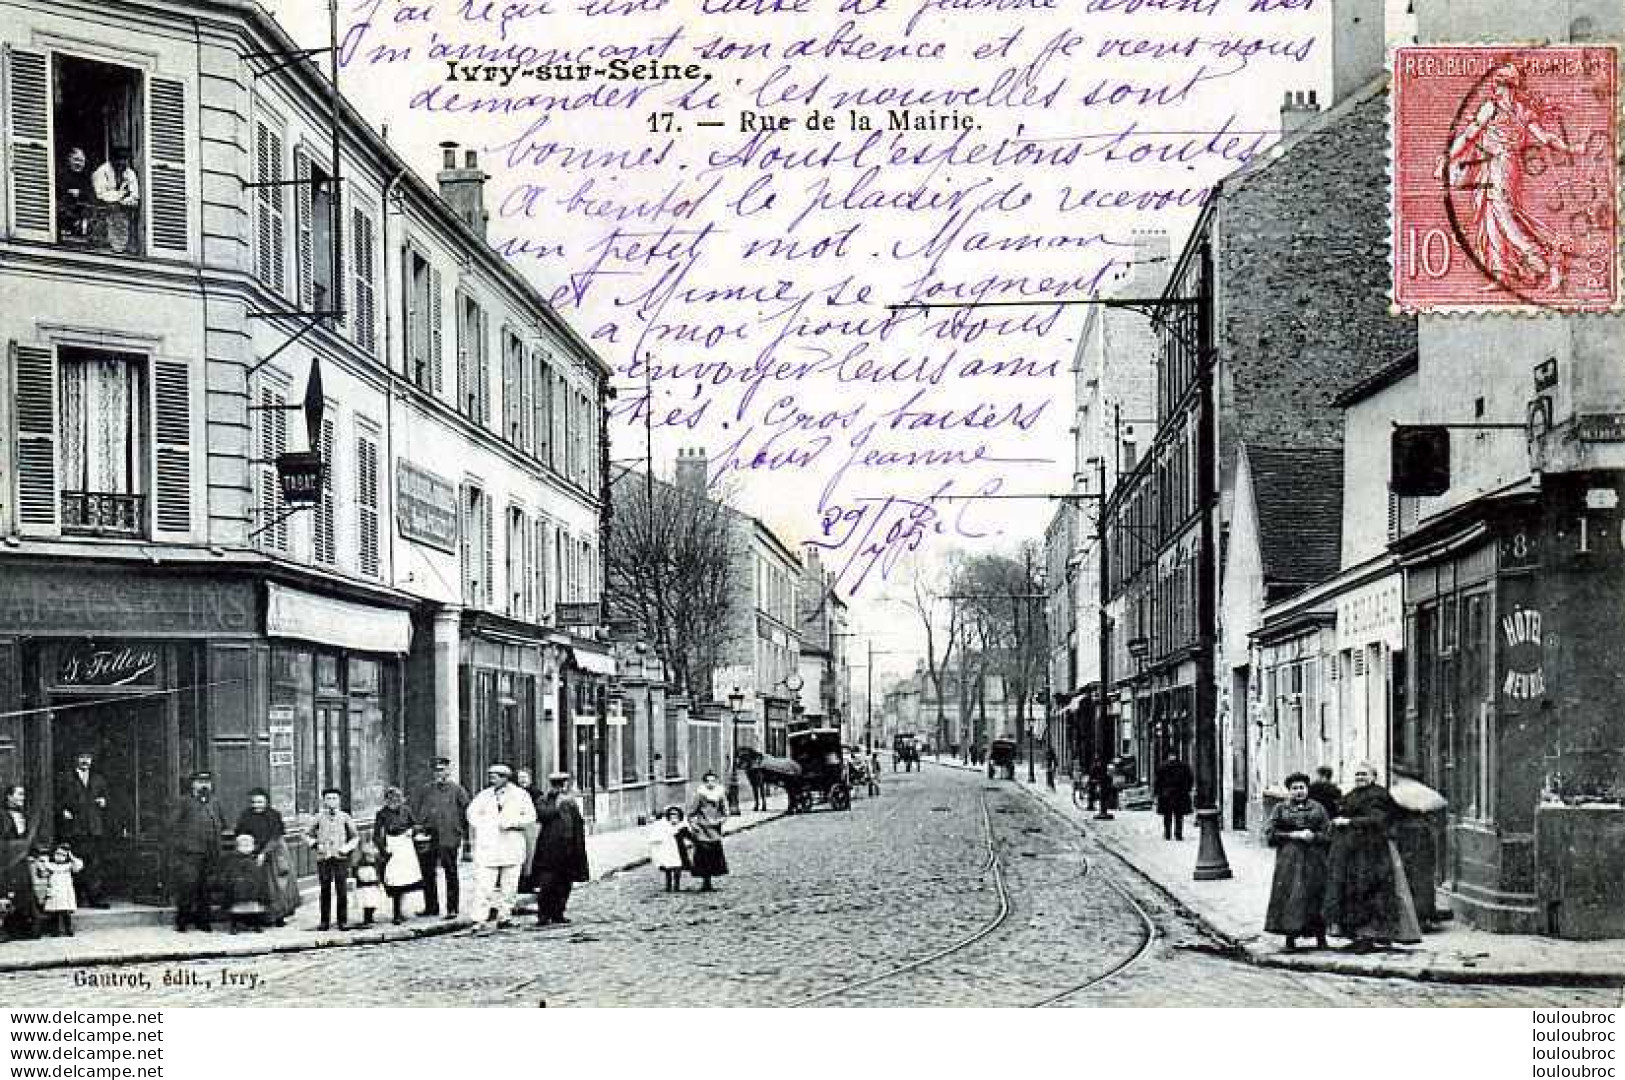 J'ai reçu une carte de Jeanne avant hier
m'annonçant son absence et je viens vous
Ivry-sur-Seine.
demander si les nouvelles sont
17. — Rue de la Mairie.
bonnes. Nous l'espérons toutes
A bientôt le plaisir de recevoir
un petit mot. Maman
et Mimie, se joignent
à moi pour vous
envoyer leurs ami-
tiés. Gros baisers
pour Jeanne
29/7 05
REPUBLIQUE FRANÇAISE
10
POSTES
TABAC
J. Fellen
HÔTEL
MEUBLÉ
8
Gautrot, édit., Ivry.
www.delcampe.net
www.delcampe.net
www.delcampe.net
www.delcampe.net
louloubroc
louloubroc
louloubroc
louloubroc